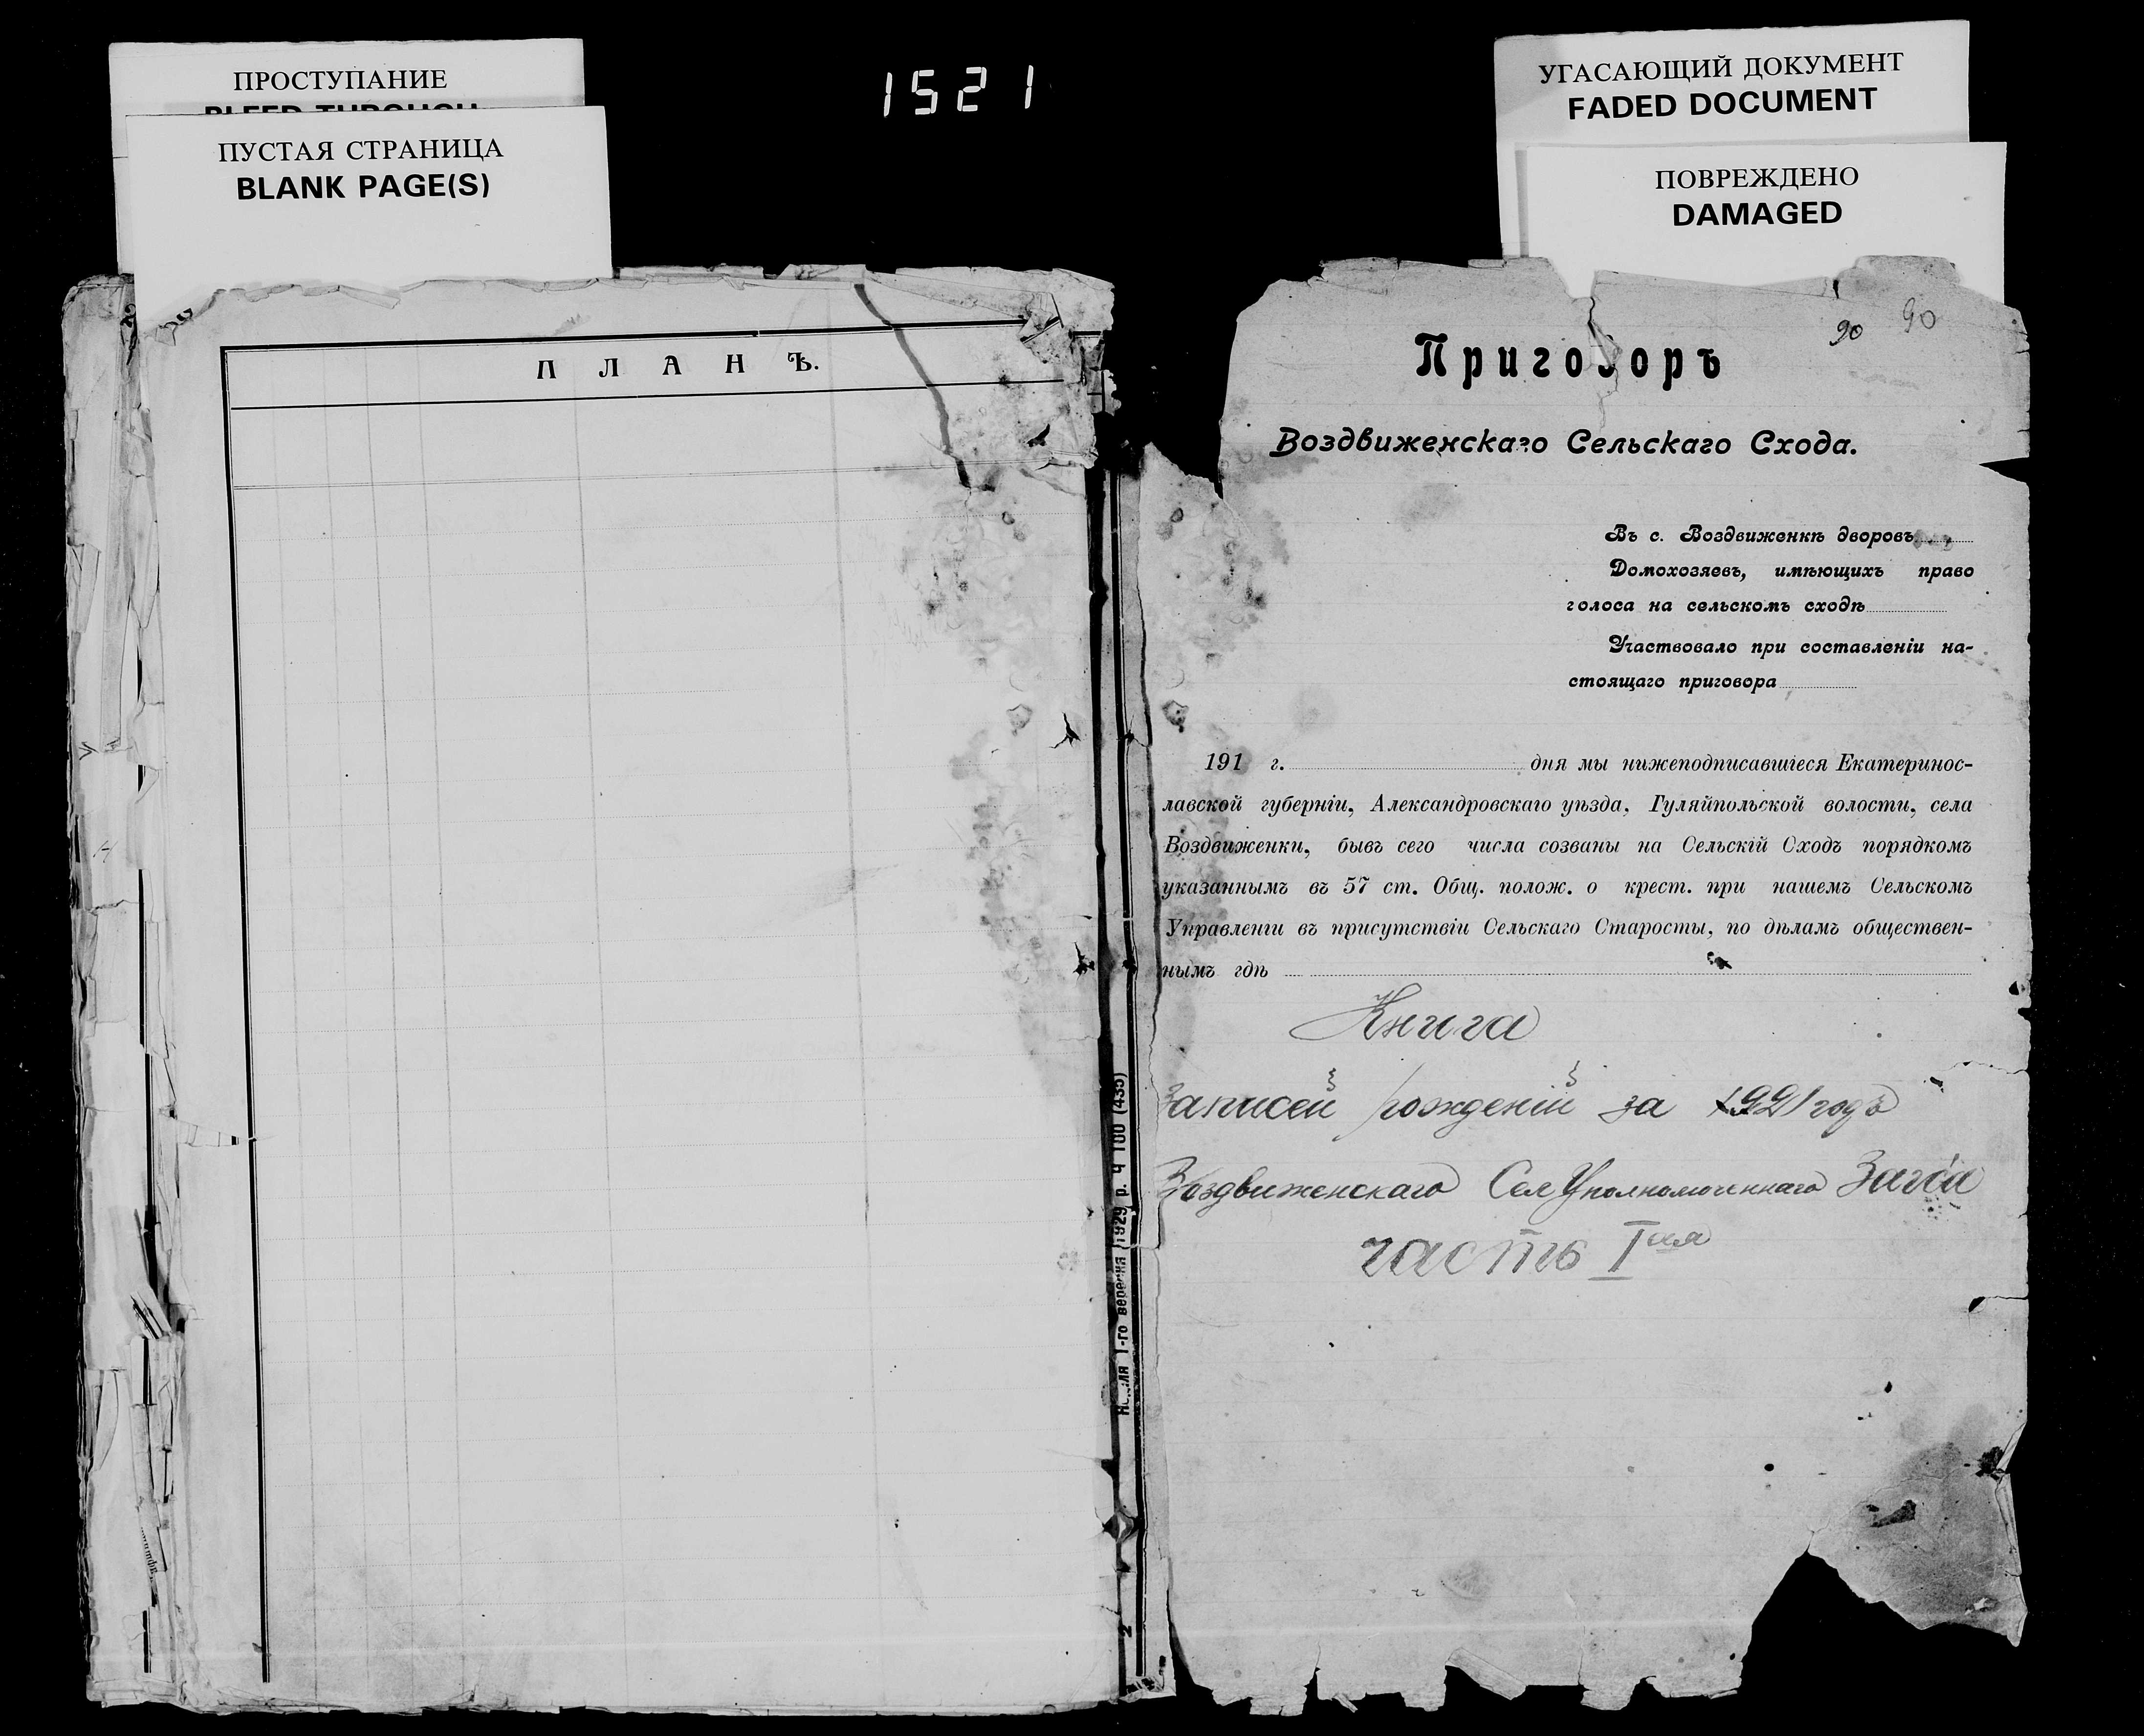 1521
ПРОСТУПАНИЕ
BLEED THROUGH
ПУСТАЯ СТРАНИЦА
BLANK PAGE(S)
УГАСАЮЩИЙ ДОКУМЕНТ
FADED DOCUMENT
ПОВРЕЖДЕНО
DAMAGED
ПЛАНЪ.
1-го вересня 1929 р. Ч 100 (435)
2
90 90
Приговоръ
Воздвиженскаго Сельскаго Схода.
Въ с. Воздвиженкѣ дворовъ
Домохозяевъ, имѣющихъ право
голоса на сельскомъ сходѣ
Участвовало при составленіи на-
стоящаго приговора
191 г. дня мы нижеподписавшіеся Екатеринос-
лавской губерніи, Александровскаго уѣзда, Гуляйпольской волости, села
Воздвиженки, бывъ сего числа созваны на Сельскій Сходъ порядкомъ
указаннымъ въ 57 ст. Общ. полож. о крест. при нашемъ Сельскомъ
Управленіи въ присутствіи Сельскаго Старосты, по дѣламъ обществен-
нымъ гдѣ
Книга
Записей рожденій за 1921 годъ
Воздвиженскаго Сел Уполномоченнаго Загса
часть Iая